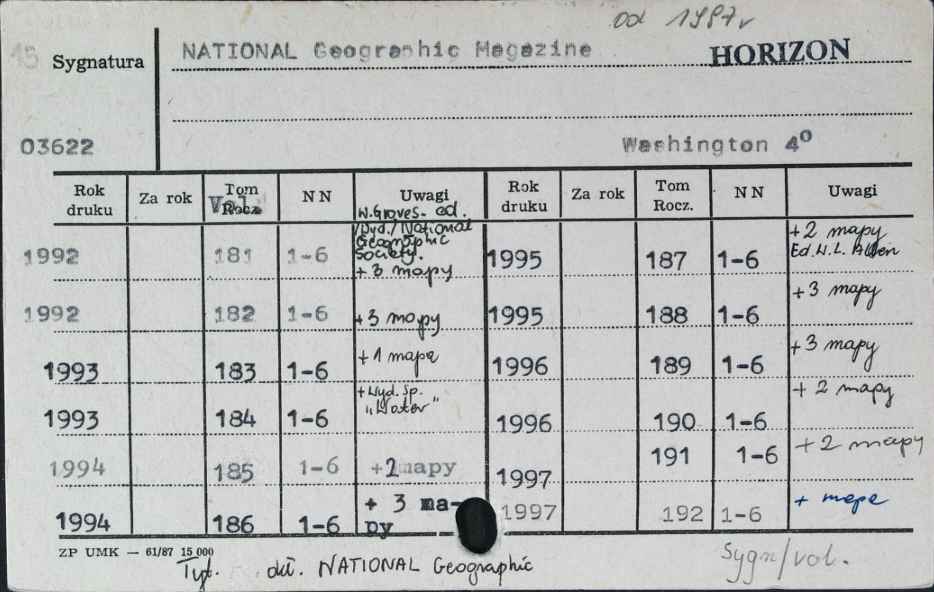 od 1987r
15 Sygnatura NATIONAL Geographic Magazine HORIZON
03622 Washington 4º
Rok druku Za rok Tom Rocz. Vol. N N Uwagi Rok druku Za rok Tom Rocz. N N Uwagi
1992 181 1-6 W. Groves- ed. /Wyd./National Geographic Society. + 3 mapy 1995 187 1-6 + 2 mapy Ed. W.L. Allen
1992 182 1-6 +3 mapy 1995 188 1-6 +3 mapy
1993 183 1-6 +1 mapa 1996 189 1-6 +3 mapy
1993 184 1-6 +Wyd. Sp. "Water" 1996 190 1-6 + 2 mapy
1994 185 1-6 +2mapy 1997 191 1-6 + 2 mapy
1994 186 1-6 + 3 ma-py 1997 192 1-6 + mapa
ZP UMK — 61/87 15 000
Tyt. NATIONAL Geographic
Sygn/vol.